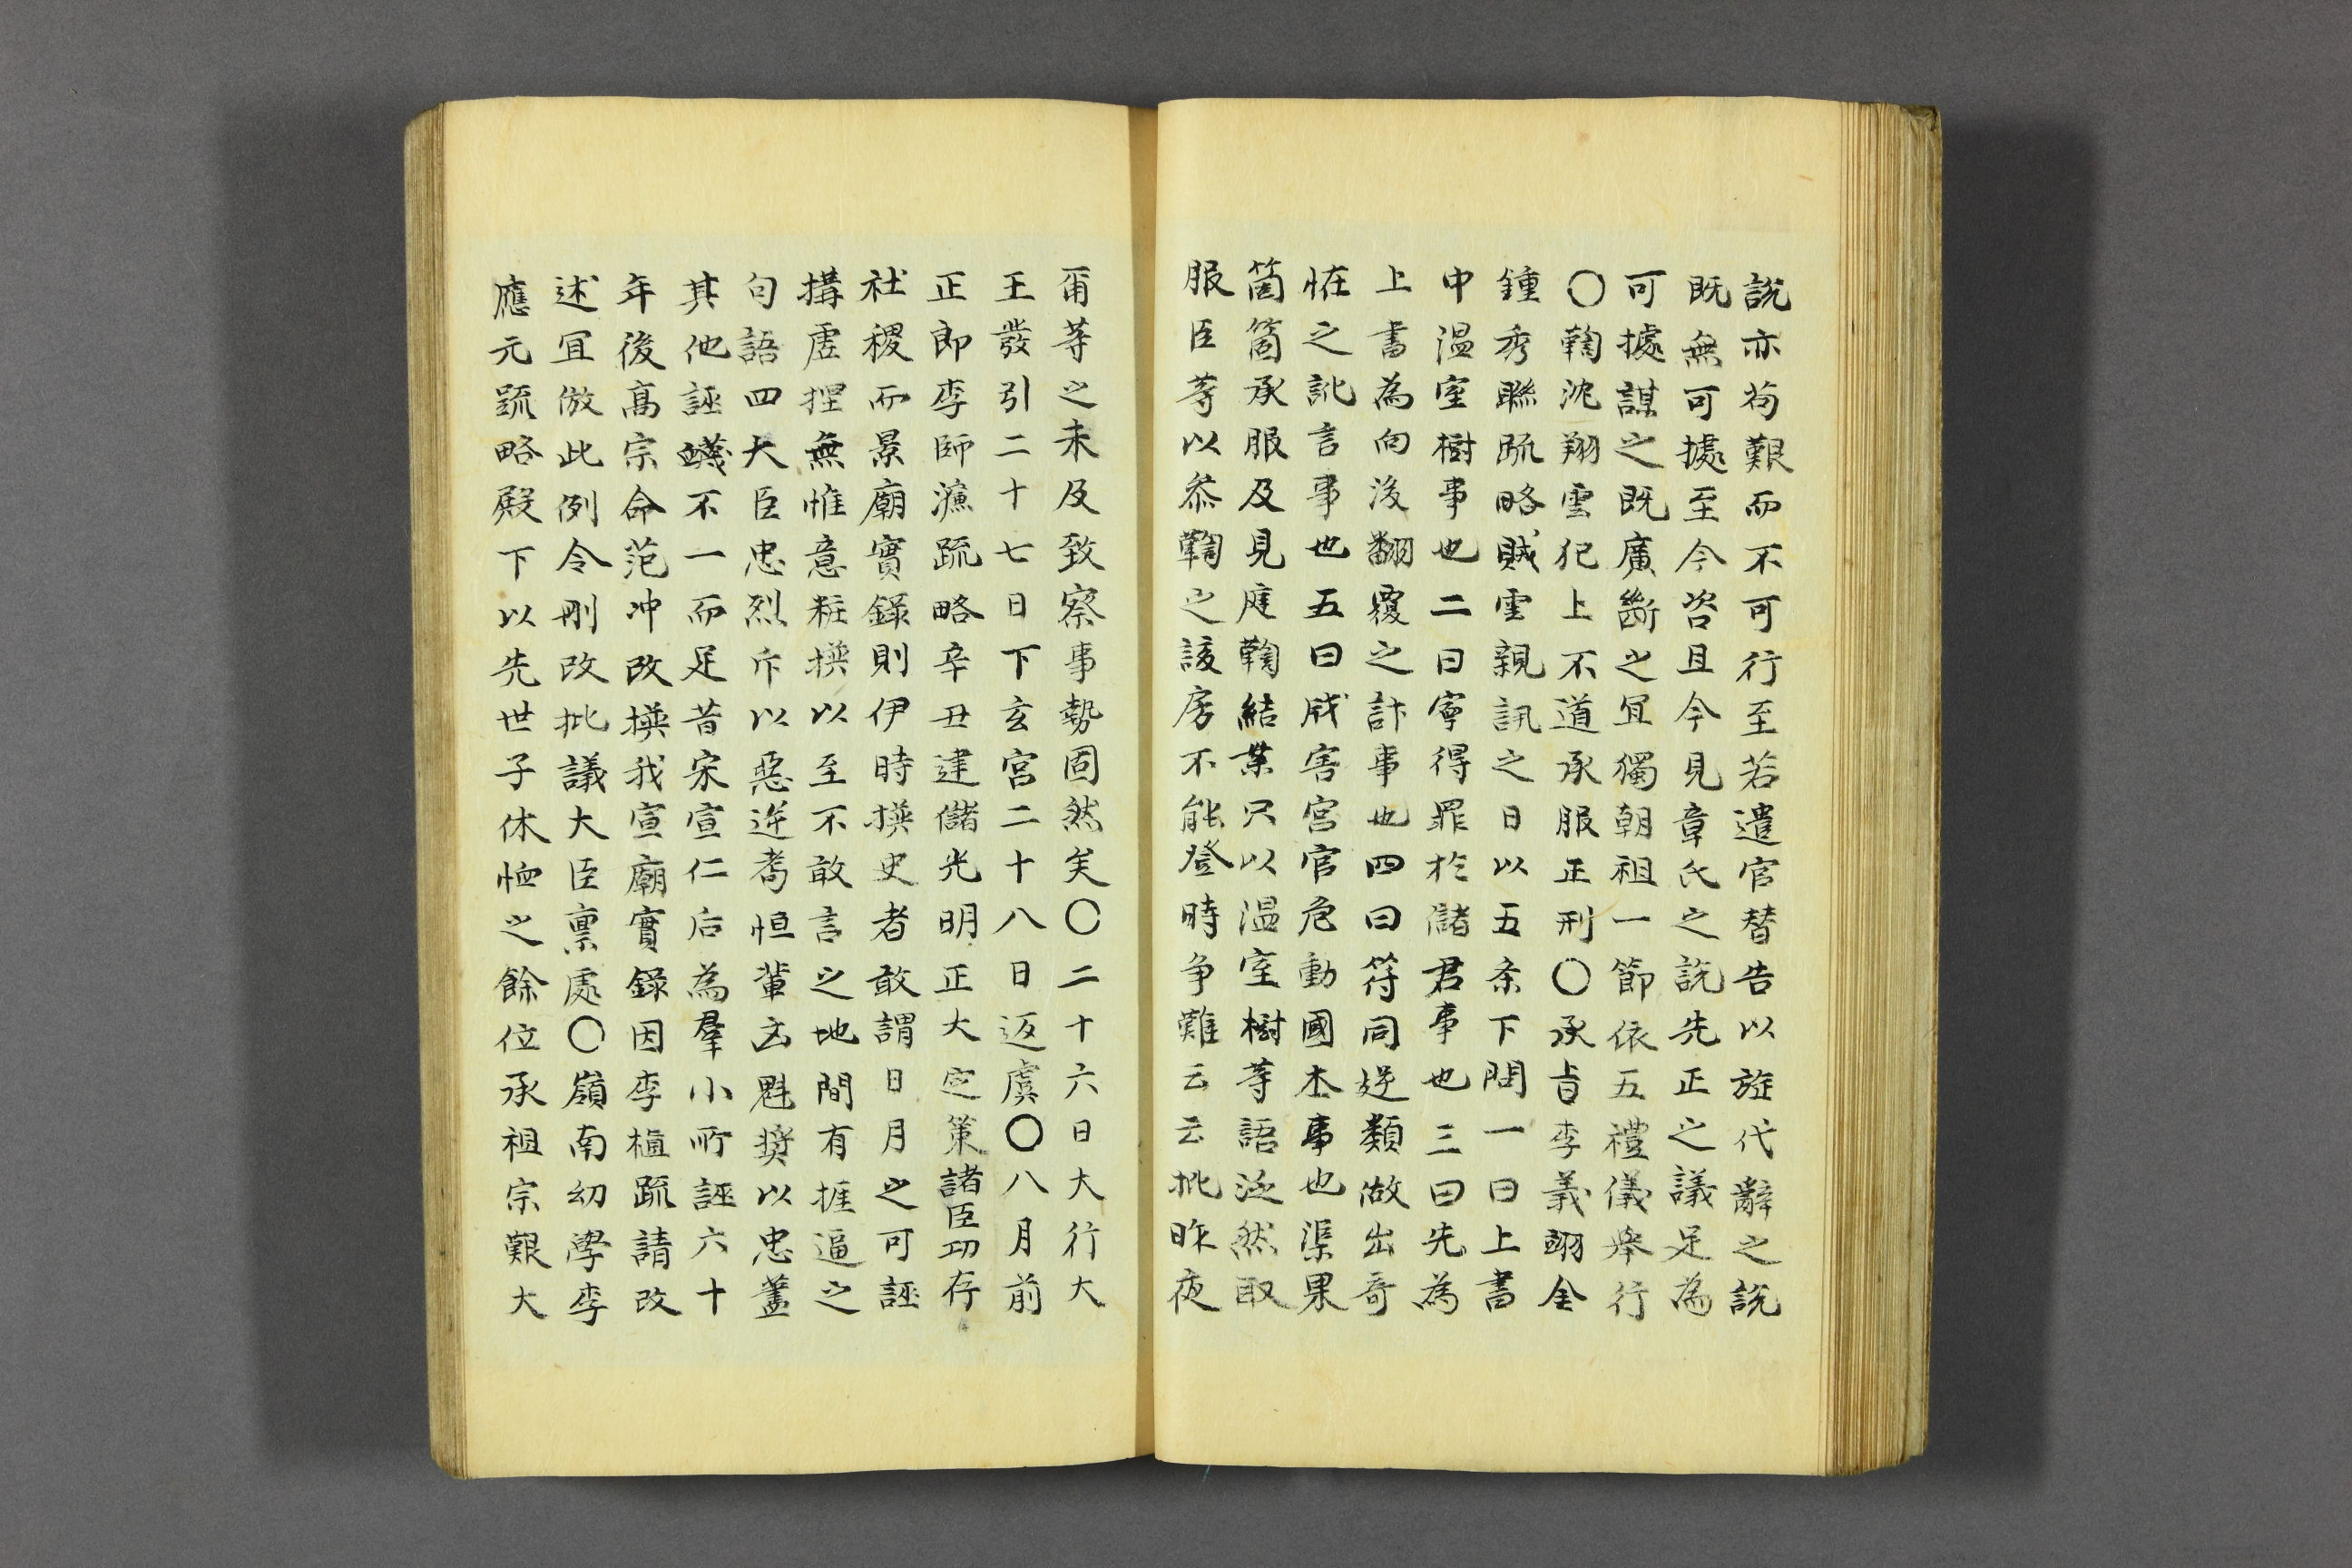 說亦苟艱而不可行至若遣官替告以旋代辭之說
既無可據至今咨且今見章氏之說先正之議足為
可據謀之既廣斷之宜獨朝祖一節依五禮儀舉行
○鞫沈翔雲犯上不道承服正刑○承旨李義翊金
鍾秀聯疏略賊雲親訊之日以五条下問一曰上書
中溫室樹事也二曰寧得罪於儲君事也三曰先為
上書為向後翻覆之計事也四曰符同逆類做出奇
恠之訛言事也五曰戕害宮官危動國本事也渠果
箇箇承服及見庭鞫結案只以溫室樹等語泛然取
服臣等以叅鞫之該房不能登時爭難云云批昨夜
甭等之未及致察事勢固然矣○二十六日大行大
王發引二十七日下玄宮二十八日返虞○八月前
正郎李師濂疏略辛丑建儲光明正大定策諸臣功存
社稷而景廟實錄則伊時撰史者敢謂日月之可誣
搆虛捏無惟意粧撰以至不敢言之地間有捱逼之
句語四大臣忠烈斥以惡逆耉恒輩凶魁奬以忠藎
其他誣衊不一而足昔宋宣仁后為羣小所誣六十
年後高宗命范冲改撰我宣廟實錄因李植疏請改
述宜倣此例令刪改批議大臣稟處○嶺南幼學李
應元疏略殿下以先世子休恤之餘位承祖宗艱大